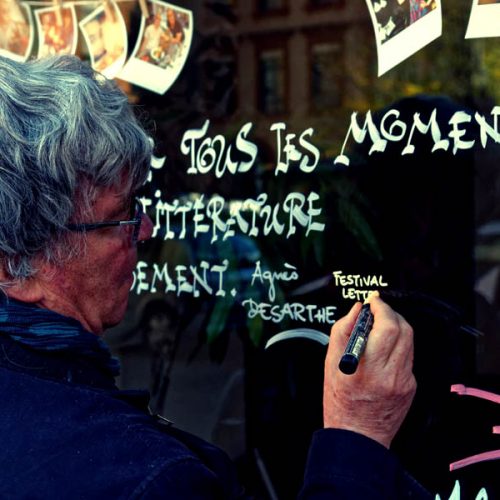 TOUS LES MOMEN
LITTÉRATURE
EMENT. Agnès
DESARTHE
FESTIVAL
LETTRE
MA